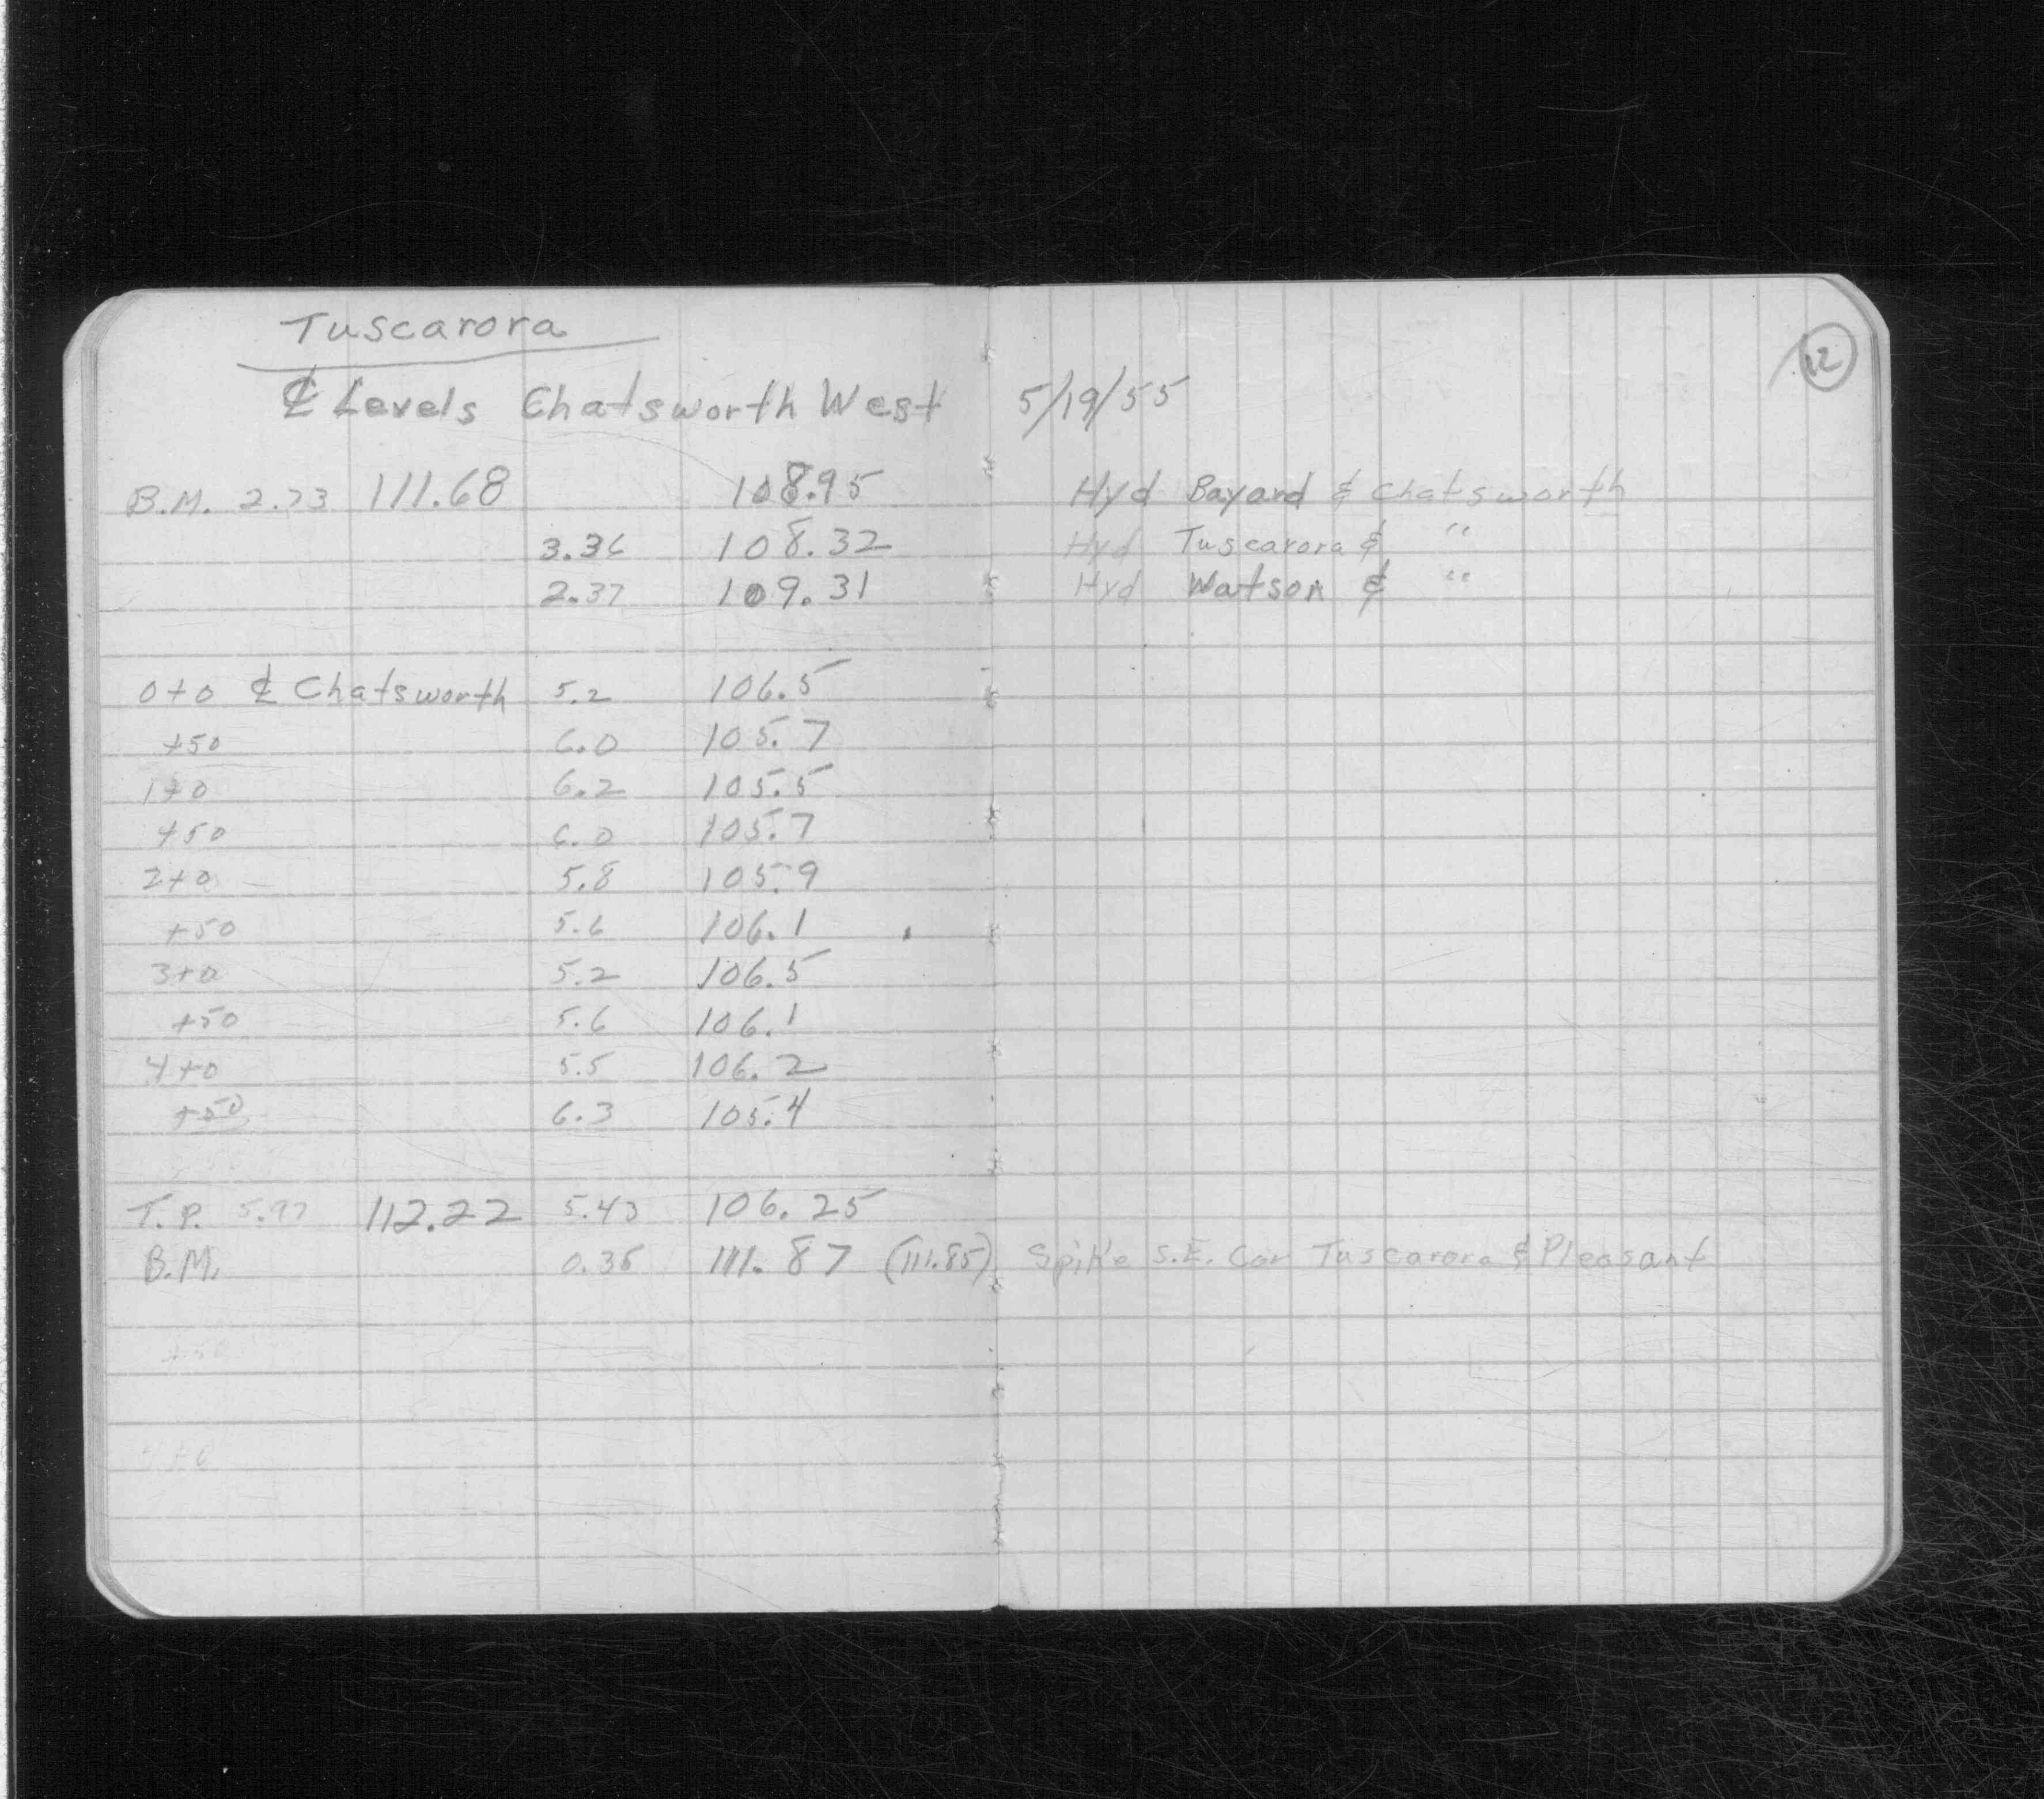 Tuscarora
12
℄ Levels Chatsworth West 5/19/55
B.M. 2.73 111.68 108.95 Hyd Bayard & Chatsworth
3.36 108.32 Hyd Tuscarora & "
2.37 109.31 Hyd Watson & "
0+0 ℄ Chatsworth 5.2 106.5
+50 6.0 105.7
1+0 6.2 105.5
+50 6.0 105.7
2+0 5.8 105.9
+50 5.6 106.1
3+0 5.2 106.5
+50 5.6 106.1
4+0 5.5 106.2
+50 6.3 105.4
T.P. 5.97 112.22 5.43 106.25
B.M. 0.35 111.87 (111.85) Spike S.E. Cor Tuscarora & Pleasant
+50